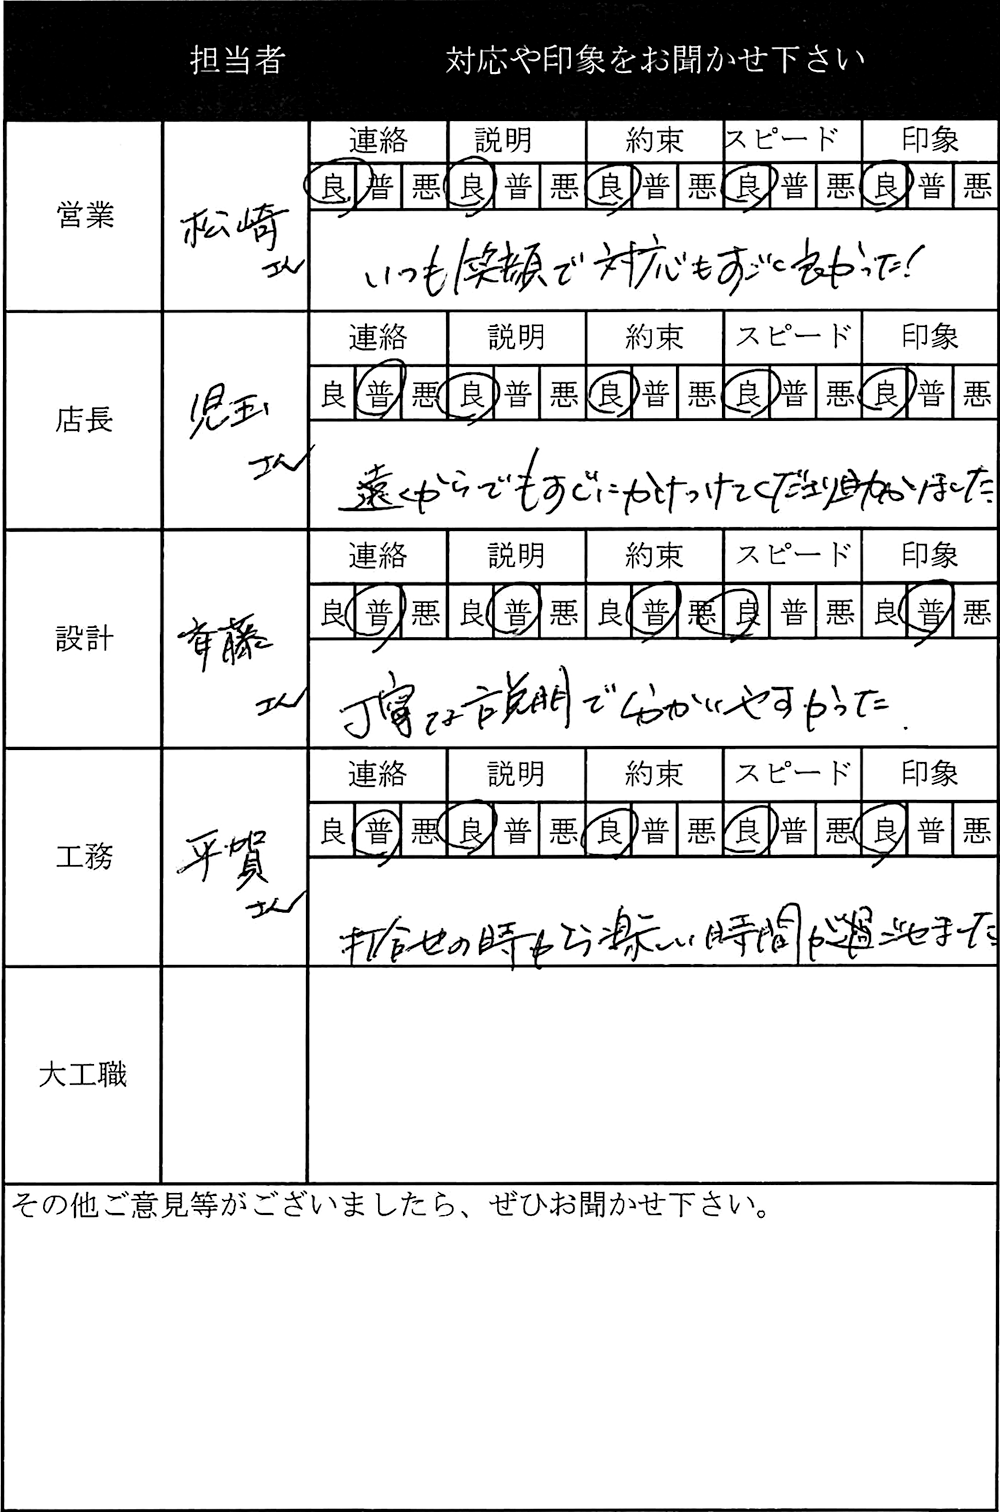 担当者 対応や印象をお聞かせ下さい
連絡 説明 約束 スピード 印象
良 普 悪 良 普 悪 良 普 悪 良 普 悪 良 普 悪
営業 松崎さん
いつも笑顔で対応もすごく良かった!
連絡 説明 約束 スピード 印象
良 普 悪 良 普 悪 良 普 悪 良 普 悪 良 普 悪
店長 児玉さん
遠くからでもすぐにかけつけてくださり助かりました
連絡 説明 約束 スピード 印象
良 普 悪 良 普 悪 良 普 悪 良 普 悪 良 普 悪
設計 斉藤さん
丁寧な説明で分かりやすかった.
連絡 説明 約束 スピード 印象
良 普 悪 良 普 悪 良 普 悪 良 普 悪 良 普 悪
工務 平賀さん
打合せの時から楽しい時間が過ごせました
大工職
その他ご意見等がございましたら、ぜひお聞かせ下さい。